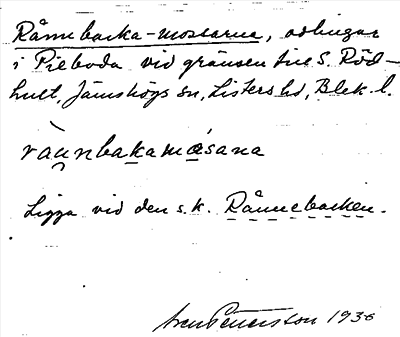 Rånnebacka-mossarne, odlingar
i Pieboda vid gränsen till S. Röd-
hult, Jämshögs sn, Listers hd, Blek. l.
ràunbakamǻsana
Ligga vid den s.k. Rånnebacken.
Petersson 1936